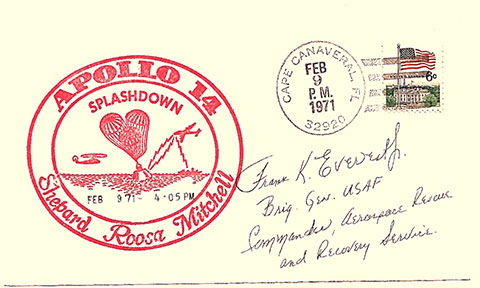 APOLLO 14
SPLASHDOWN
FEB 9 71 - 4:05 PM
Shepard Roosa Mitchell
CAPE CANAVERAL, FL
FEB
9
P.M.
1971
32920
6c
Frank K. Everest Jr.
Brig. Gen. USAF
Commander, Aerospace Rescue
and Recovery Service.